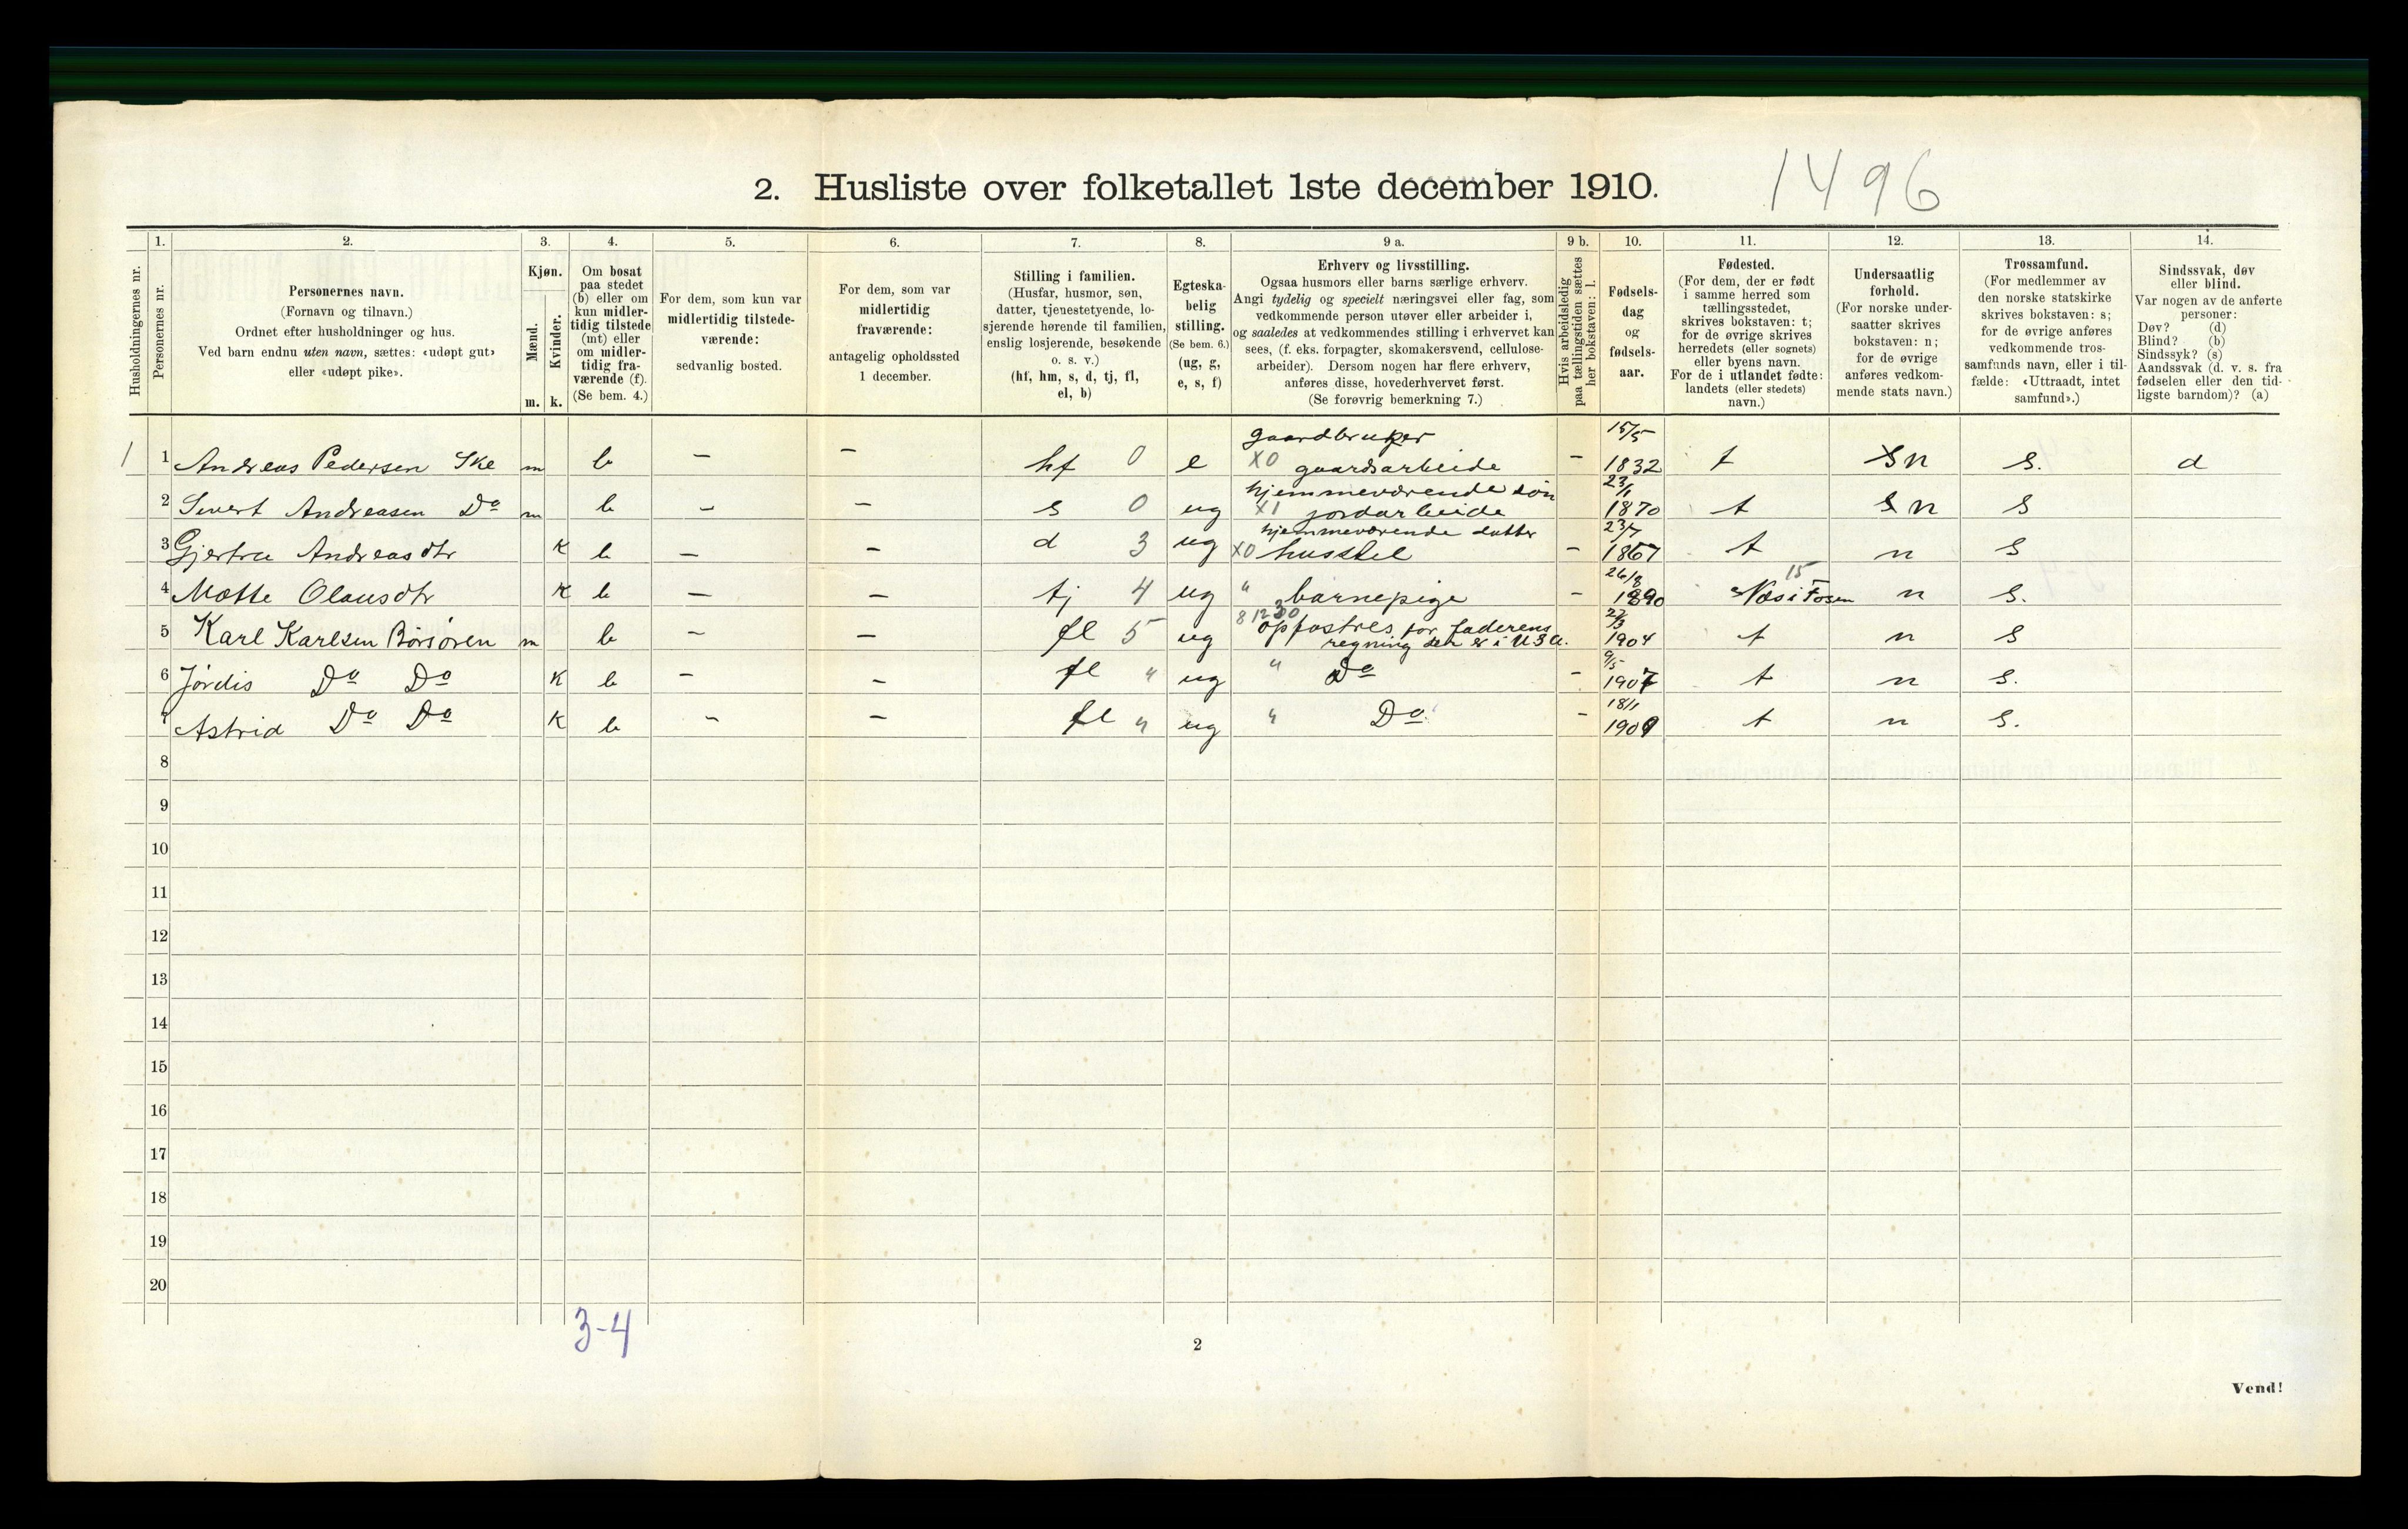 2. Husliste over folketallet 1ste december 1910.
1496
Husholdningernes nr.
1.
Personernes nr.
2.
Personernes navn.
(Fornavn og tilnavn.)
Ordnet efter husholdninger og hus.
Ved barn endnu uten navn, sættes: «udøpt gut»
eller «udøpt pike».
3.
Kjøn.
Mænd.
Kvinder.
m. k.
4.
Om bosat
paa stedet
(b) eller om
kun midler-
tidig tilstede
(mt) eller
om midler-
tidig fra-
værende (f).
(Se bem. 4.)
5.
For dem, som kun var
midlertidig tilstede-
værende:
sedvanlig bosted.
6.
For dem, som var
midlertidig
fraværende:
antagelig opholdssted
1 december.
7.
Stilling i familien.
(Husfar, husmor, søn,
datter, tjenestetyende, lo-
sjerende hørende til familien,
enslig losjerende, besøkende
o. s. v.)
(hf, hm, s, d, tj, fl,
el, b)
8.
Egteska-
belig
stilling.
(Se bem. 6.)
(ug, g,
e, s, f)
9 a.
Erhverv og livsstilling.
Ogsaa husmors eller barns særlige erhverv.
Angi tydelig og specielt næringsvei eller fag, som
vedkommende person utøver eller arbeider i,
og saaledes at vedkommendes stilling i erhvervet kan
sees, (f. eks. forpagter, skomakersvend, cellulose-
arbeider). Dersom nogen har flere erhverv,
anføres disse, hovederhvervet først.
(Se forøvrig bemerkning 7.)
9 b.
Hvis arbeidsledig
paa tællingstiden sættes
her bokstaven: l.
10.
Fødsels-
dag
og
fødsels-
aar.
11.
Fødested.
(For dem, der er født
i samme herred som
tællingsstedet,
skrives bokstaven: t;
for de øvrige skrives
herredets (eller sognets)
eller byens navn.
For de i utlandet fødte:
landets (eller stedets)
navn.)
12.
Undersaatlig
forhold.
(For norske under-
saatter skrives
bokstaven: n;
for de øvrige
anføres vedkom-
mende stats navn.)
13.
Trossamfund.
(For medlemmer av
den norske statskirke
skrives bokstaven: s;
for de øvrige anføres
vedkommende tros-
samfunds navn, eller i til-
fælde: «Uttraadt, intet
samfund».)
14.
Sindssvak, døv
eller blind.
Var nogen av de anførte
personer:
Døv? (d)
Blind? (b)
Sindssyk? (s)
Aandssvak (d. v. s. fra
fødselen eller den tid-
ligste barndom)? (a)
1 1 Andreas Pedersen Ske m b - - hf 0 e gaardbruker X0 gaardsarbeide - 15/5 1832 t n s. d
2 Sivert Andreasen Do m b - - s 0 ug hjemmeværende søn X1 jordarbeide 23/1 1870 t n s
3 Gjertru Andreasdtr k b - - d 3 ug hjemmeværende datter X0 husstel - 23/7 1867 t n s
4 Mette Olausdtr k b - - tj 4 ug " barnepige - 26/8 1890 15 Næs i Fosen n s.
5 Karl Karlsen Börsören m b - - fl 5 ug opfostres for faderens regning der er i U S a. 22/3 1904 t n s
6 Jördis Do Do k b - - fl " ug " Do - 9/5 1907 t n s.
7 Astrid Do Do k b - - fl " ug " Do - 18/1 1909 t n s.
8
9
10
11
12
13
14
15
16
17
18
19
20
3-4
2
Vend!